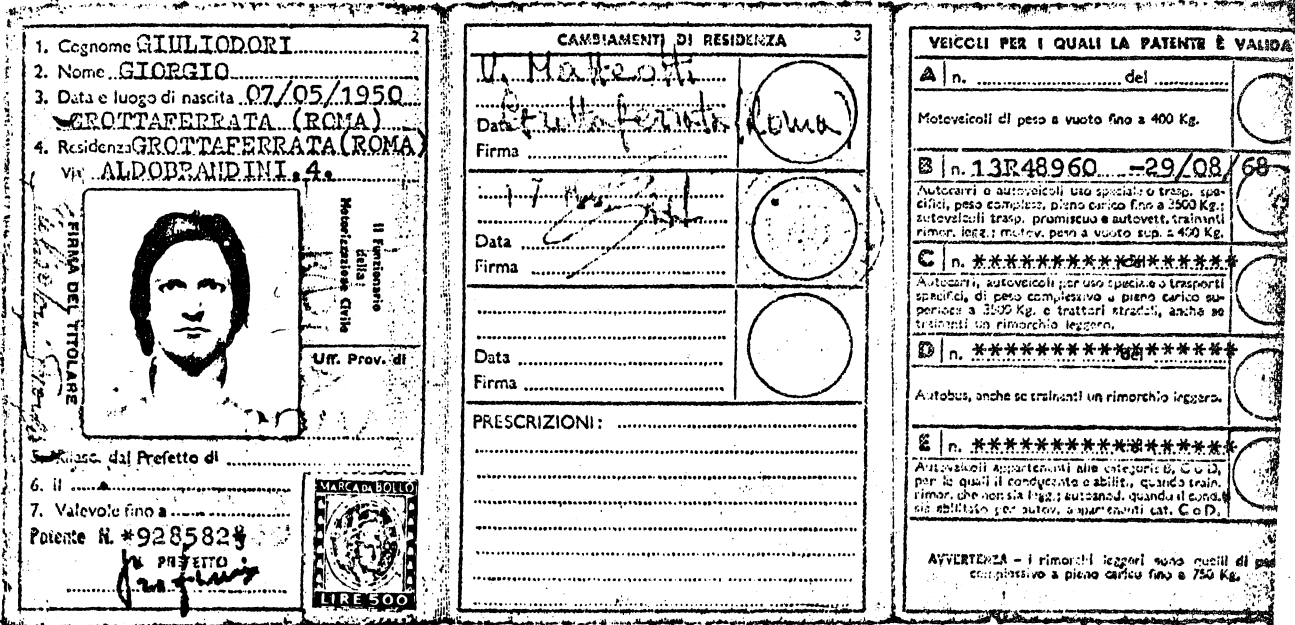 2
1. Cognome GIULIODORI
2. Nome GIORGIO
3. Data e luogo di nascita 07/05/1950
GROTTAFERRATA (ROMA)
4. Residenza GROTTAFERRATA (ROMA)
Via ALDOBRANDINI.4.
FIRMA DEL TITOLARE
Il Funzionario
della
Motorizzazione Civile
Uff. Prov. di
5. Rilasc. dal Prefetto di
6. il
7. Valevole fino a
Patente N. *928582*
PREFETTO
MARCA DA BOLLO
LIRE 500
3
CAMBIAMENTI DI RESIDENZA
V. Matteotti
Data Grottaferrata (Roma)
Firma
17
Data
Firma
Data
Firma
PRESCRIZIONI:
VEICOLI PER I QUALI LA PATENTE È VALIDA
A n. del
Motoveicoli di peso a vuoto fino a 400 Kg.
B n. 13R48960 -29/08/68
Autocarri o autoveicoli uso speciale o trasp. spe-
cifici, peso compless. pieno carico fino a 3500 Kg.;
autoveicoli trasp. promiscuo e autovett. trainanti
rimor. legg.; motov. peso a vuoto sup. a 400 Kg.
C n. *****************
Autocarri, autoveicoli per uso speciale o trasporti
specifici, di peso complessivo a pieno carico su-
periore a 3500 Kg. e trattori stradali, anche se
trainanti un rimorchio leggero.
D n. *****************
Autobus, anche se trainanti un rimorchio leggero.
E n. *****************
Autoveicoli appartenenti alle categorie B, C o D,
per le quali il conducente è abilit., quando train.
rimor. che non sia legg.; autosnod. quando il cond.
sia abilitato per autov. appartenenti cat. C o D.
AVVERTENZA - i rimorchi leggeri sono quelli di
complessivo a pieno carico fino a 750 Kg.